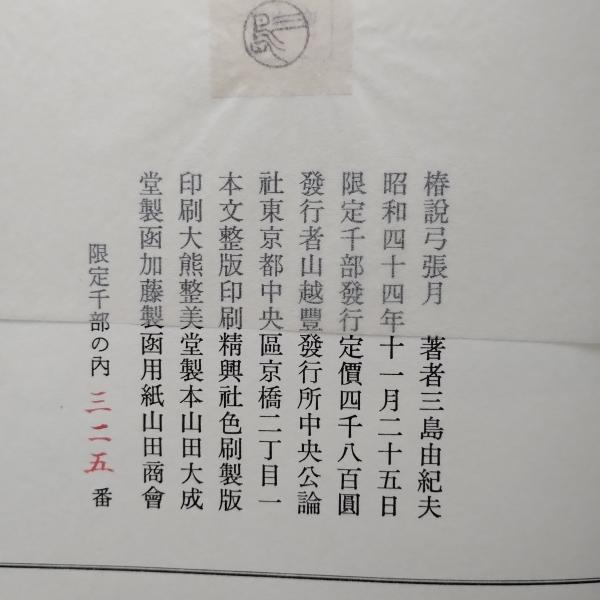 椿說弓張月 著者三島由紀夫
昭和四十四年十一月二十五日
限定千部發行定價四千八百圓
發行者山越豐發行所中央公論
社東京都中央區京橋二丁目一
本文整版印刷精興社色刷製版
印刷大熊整美堂製本山田大成
堂製函加藤製函用紙山田商會
限定千部の內 三二五 番